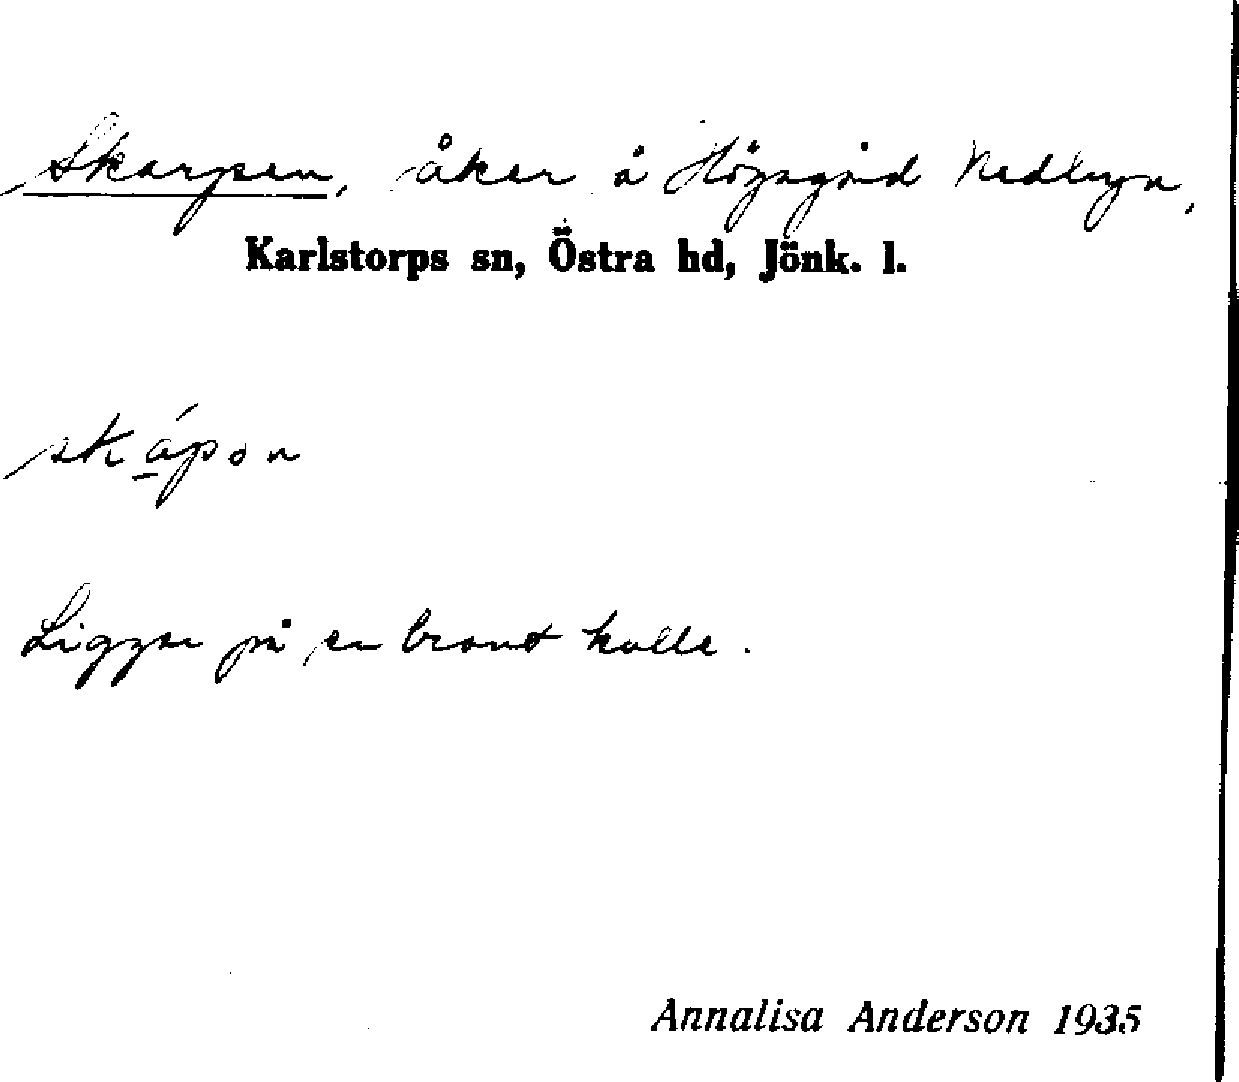 Skarpen, åker å Högagärd Nedbyn,
Karlstorps sn, Östra hd, Jönk. l.
skápǝn
Ligger på en brant kulle.
Annalisa Anderson 1935